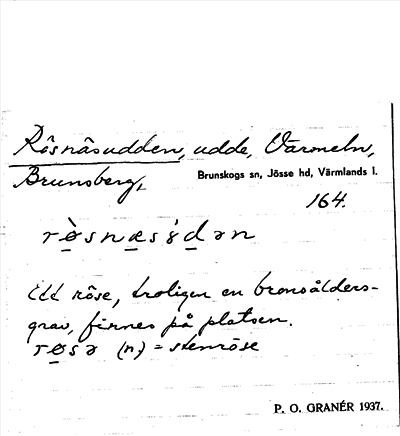 Rösnäsudden, udde, Värmeln,
Brunsberg,
Brunskogs sn, Jösse hd, Värmlands l.
164.
rø̀snæsúdən
Ett röse, troligen en bronsålders-
grav, finnes på platsen.
røsə (n.) = stenröse
P. O. GRANÉR 1937.